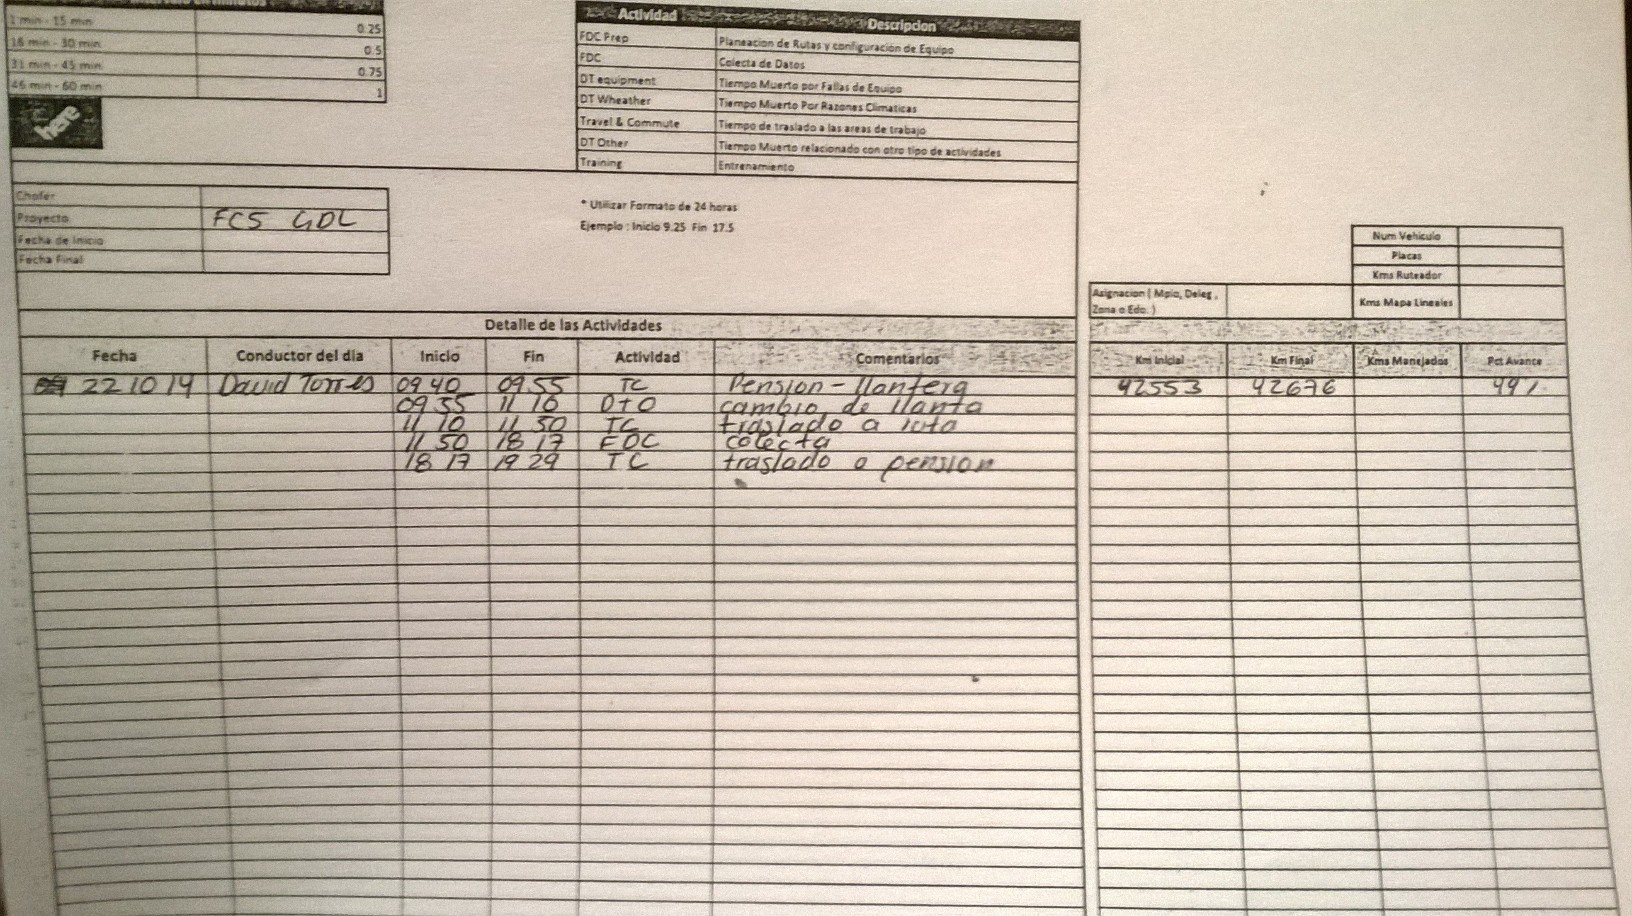 Intervalo en minutos
1 min - 15 min 0.25
16 min - 30 min 0.5
31 min - 45 min 0.75
46 min - 60 min 1
here
Actividad Descripcion
FDC Prep Planeacion de Rutas y configuración de Equipo
FDC Colecta de Datos
DT equipment Tiempo Muerto por Fallas de Equipo
DT Wheather Tiempo Muerto Por Razones Climaticas
Travel & Commute Tiempo de traslado a las areas de trabajo
DT Other Tiempo Muerto relacionado con otro tipo de actividades
Training Entrenamiento
Chofer
Proyecto FCS GDL
Fecha de Inicio
Fecha Final
* Utilizar Formato de 24 horas
Ejemplo : Inicio 9.25 Fin 17.5
Num Vehiculo
Placas
Kms Ruteador
Kms Mapa Lineales
Asignacion ( Mpio, Deleg ,
Zona o Edo. )
Detalle de las Actividades
Fecha Conductor del dia Inicio Fin Actividad Comentarios Km Inicial Km Final Kms Manejados Pct Avance
22 10 14 David Torres 09 40 09 55 TC Pension - llantera 42553 42676
09 55 11 10 DTO cambio de llanta
11 10 11 50 TC traslado a ruta
11 50 18 17 FDC colecta
18 17 19 29 TC traslado a pension